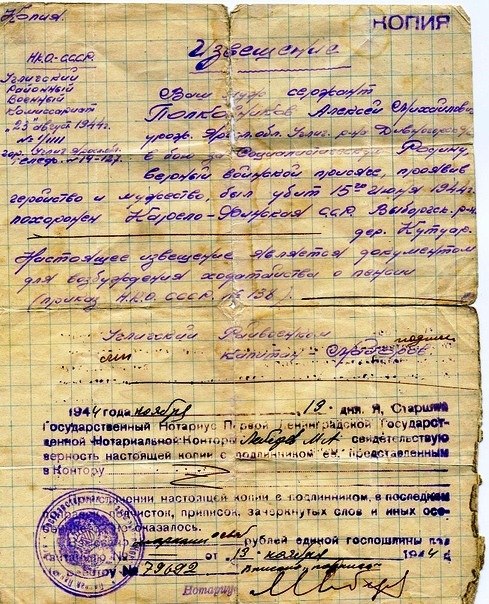 Копия
КОПИЯ
Извещение
Н.К.О. СССР
Угличский
Районный
Военный
Комиссариат
"23" август 1944г.
гор. Углич Яросл.
Ваш муж сержант
Алексей Михайлович
урож. Яросл. обл. Углич. р-на
в бою за Социалистическую Родину,
верный воинской присяге, проявив
геройство и мужество, был убит 15го июня 1944г.
похоронен Карело-Финская ССР. Выборгск. р-н
дер. Кутуар.
Настоящее извещение является документом
для возбуждения ходатайства о пенсии
(приказ Н.К.О. СССР № 138)
Угличский Райвоенком
капитан подпись
1944 года ноября 13 дня. Я, Старший
Государственный Нотариус Первой Ленинградской Государст-
венной Нотариальной Конторы свидетельствую
верность настоящей копии с подлинником ея, представленным
в Контору
При сличении настоящей копии с подлинником, в последнем
подчисток, приписок, зачеркнутых слов и иных осо-
не оказалось.
рублей единой госпошлины по
№ от 13 ноября 1944
№ 79692
Нотариус